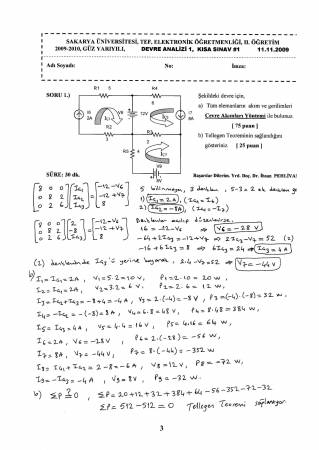 SAKARYA ÜNİVERSİTESİ, TEF, ELEKTRONİK ÖĞRETMENLİĞİ, II. ÖĞRETİM
2009-2010, GÜZ YARIYILI, DEVRE ANALİZİ 1, KISA SINAV #1 11.11.2009
Adı Soyadı: No: İmza:
SORU 1.)
R1 5
R4 6
I6
2A
V8
12V
I7
8A
R2
R5
R3 2
V9
8V
Şekildeki devre için,
a) Tüm elemanların akım ve gerilimleri
Çevre Akımları Yöntemi ile bulunuz.
[ 75 puan ]
b) Tellegen Teoreminin sağlandığını
gösteriniz [ 25 puan ]
SÜRE: 30 dk.
Başarılar Dilerim. Yrd. Doç. Dr. İhsan PEHLİVAN
[8 0 0] [Iç1] [-12-V6]
[0 8 2] [Iç2] = [-12+V7]
[0 2 6] [Iç3] [8]
5 bilinmeyen, 3 denklem
1) Iç1 = 2A, (Iç1 = I6)
2) Iç2 = -8A, (Iç2 = -I7)
[8 0 0] [2] [-12-V6]
[0 8 2] [-8] = [-12+V7]
[0 2 6] [Iç3] [8]
Denklemler
16 = -12-V6 ⇒ V6 = -28 V
-64+2Iç3 = -12+V7 ⇒ 2Iç3-V7 = 52 (2)
-16+6Iç3 = 8 ⇒ 6Iç3 = 24 ⇒ Iç3 = 4A
(2) denkleminde Iç3'ü yerine koyarak, 2.4-V7 = 52 ⇒ V7 = -44 V
I1 = Iç1 = 2A, V1 = 5.2 = 10 V, P1 = 2.10 = 20 W,
I2 = Iç1 = 2A, V2 = 3.2 = 6 V, P2 = 2.6 = 12 W,
I3 = Iç2+Iç3 = -8+4 = -4A, V3 = 2.(-4) = -8V, P3 = (-4).(-8) = 32 W,
I4 = -Iç2 = -(-8) = 8A, V4 = 6.8 = 48 V, P4 = 8.48 = 384 W,
I5 = Iç3 = 4A, V5 = 4.4 = 16V, P5 = 4.16 = 64 W,
I6 = 2A, V6 = -28V, P6 = 2.(-28) = -56 W,
I7 = 8A, V7 = -44V, P7 = 8.(-44) = -352 W
I8 = Iç1+Iç2 = 2-8 = -6A, V8 = 12V, P8 = -72 W,
I9 = -Iç3 = -4A, V9 = 8V, P9 = -32 W.
b) ΣP ≟ 0, ΣP = 20+12+32+384+64-56-352-72-32
ΣP = 512-512 = 0 Tellegen Teoremi sağlanıyor.
3